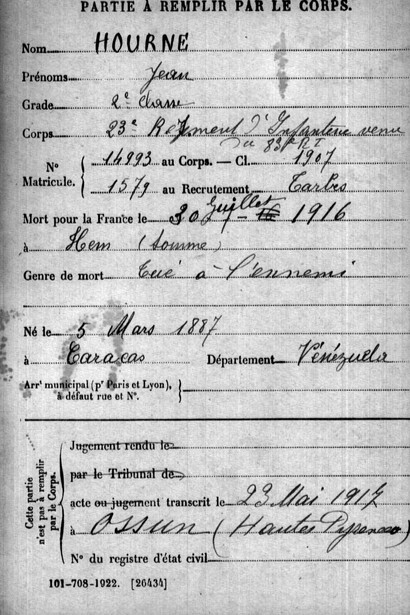 PARTIE À REMPLIR PAR LE CORPS.
Nom HOURNÉ
Prénoms Jean
Grade 2e classe
Corps 23e Régiment d'Infanterie venu
du 83e R I
No Matricule. 14993 au Corps. — Cl. 1907
1579 au Recrutement Tarbes
Mort pour la France le 30 Juillet 1916
à Hem (Somme)
Genre de mort Tué à l'ennemi
Né le 5 Mars 1887
à Caracas Département Vénézuela
Arrt municipal (pr Paris et Lyon),
à défaut rue et No.
Cette partie
n'est pas à remplir
par le Corps.
Jugement rendu le
par le Tribunal de
acte ou jugement transcrit le 23 Mai 1917
à Ossun (Hautes Pyrénées)
No du registre d'état civil
101-708-1922. [26434]